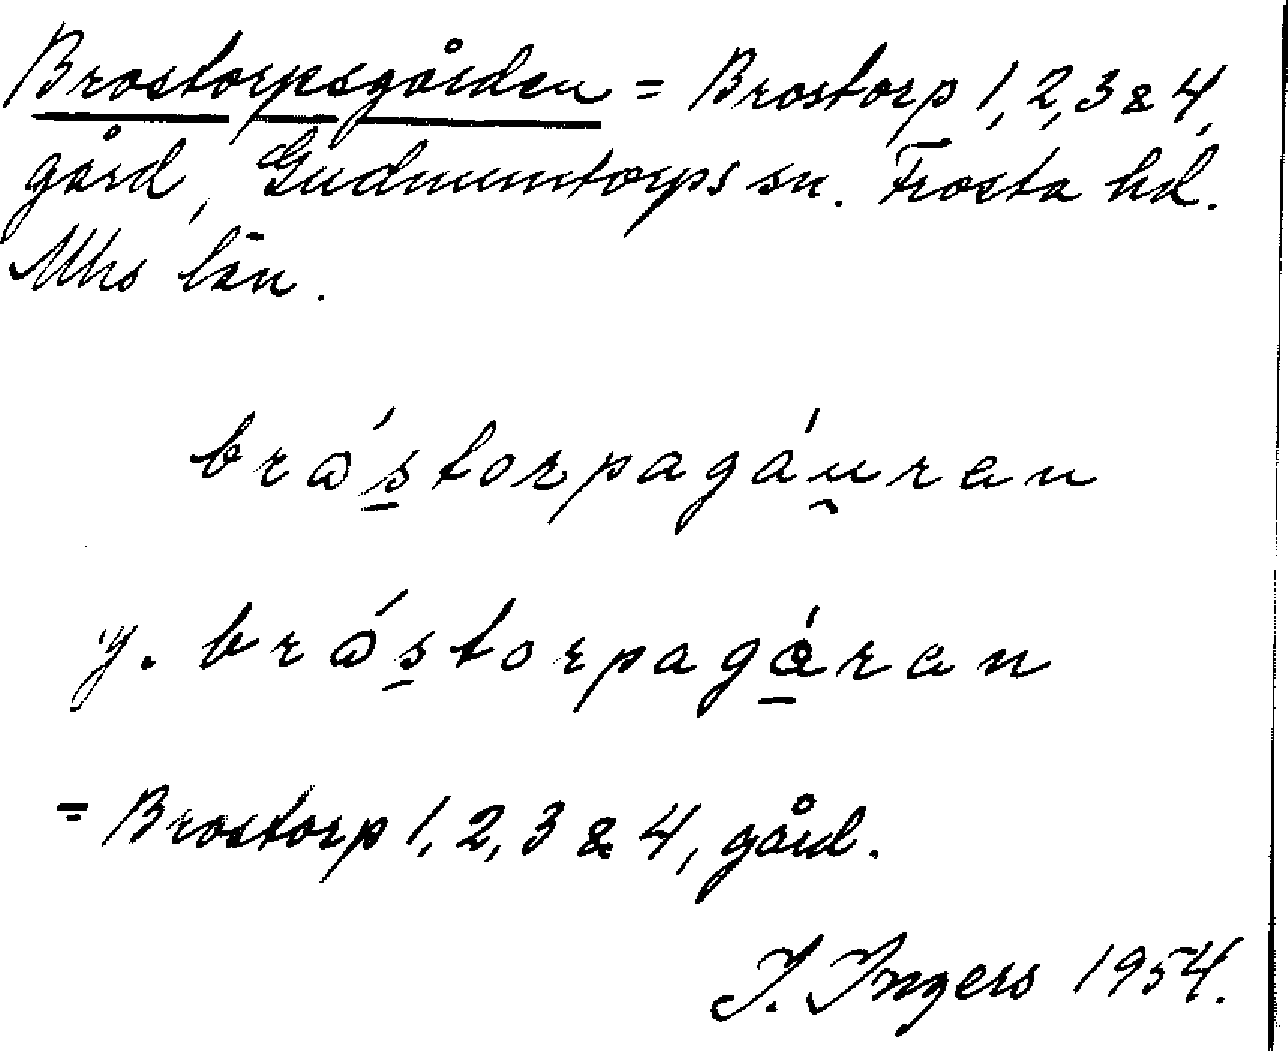 Brostorpsgården = Brostorp 1, 2, 3 & 4,
gård, Gudmuntorps sn. Frosta hd.
Mhs län.
brɷ́s̠torpagáu̯ran
y. brɷ́s̠torpagá̠ran
= Brostorp 1, 2, 3 & 4, gård.
I. Ingers 1954.